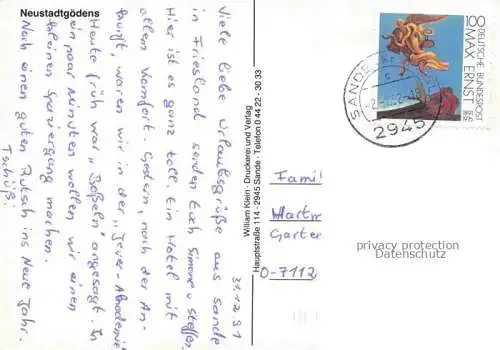 Neustadtgödens
31.12.91
Viele liebe Urlaubsgrüße aus Sande
in Friesland senden Euch Simone u. Steffen.
Hier ist es ganz toll. Ein Hotel mit
allem Komfort. Gestern, nach der An-
kunft, waren wir in der „Jever-Akademie".
Heute früh war „Boßeln" angesagt. In
ein paar Minuten wollen wir einen
kleinen Spaziergang machen.
Noch einen guten Rutsch ins Neue Jahr.
Tschüß!
William Klein · Druckerei und Verlag
Hauptstraße 114 · 2945 Sande · Telefon 0 44 22 - 30 33
100 DEUTSCHE BUNDESPOST
MAX ERNST
SANDE
2945
Famil
Hartm
Garten
O-7112
privacy protection
Datenschutz